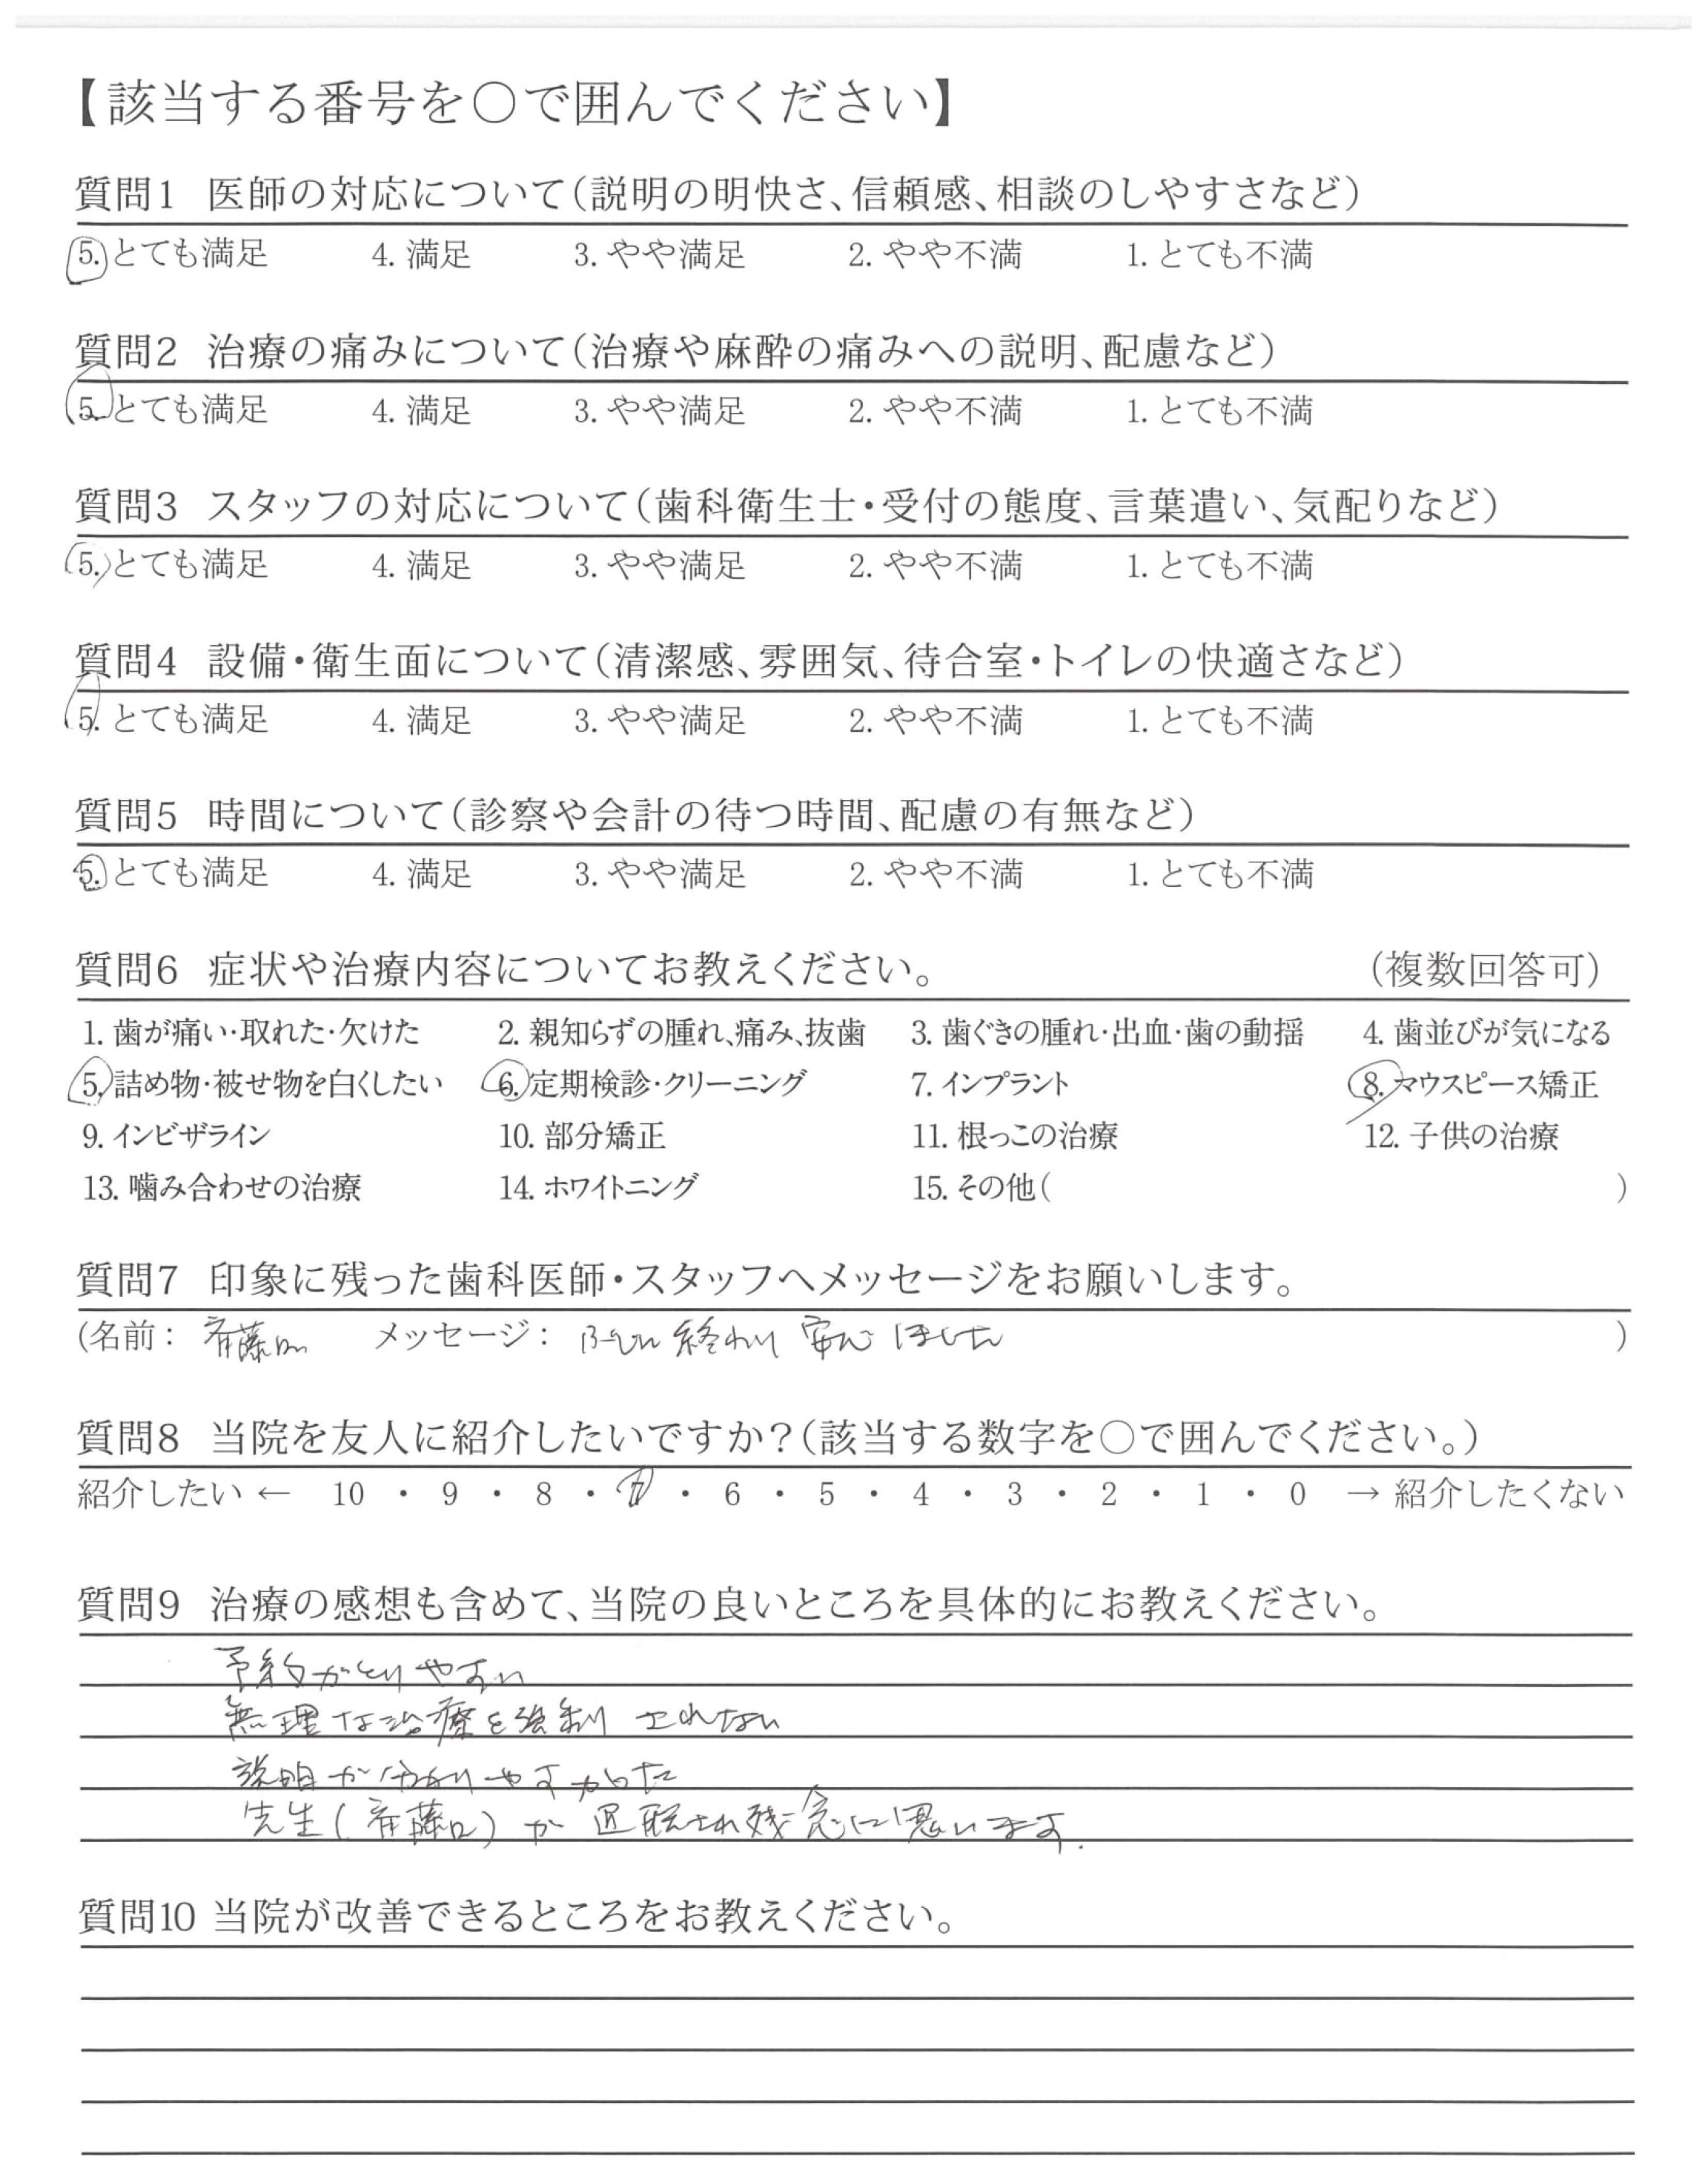 【該当する番号を〇で囲んでください】
質問1 医師の対応について(説明の明快さ、信頼感、相談のしやすさなど)
5. とても満足 4. 満足 3. やや満足 2. やや不満 1. とても不満
質問2 治療の痛みについて(治療や麻酔の痛みへの説明、配慮など)
5. とても満足 4. 満足 3. やや満足 2. やや不満 1. とても不満
質問3 スタッフの対応について(歯科衛生士・受付の態度、言葉遣い、気配りなど)
5. とても満足 4. 満足 3. やや満足 2. やや不満 1. とても不満
質問4 設備・衛生面について(清潔感、雰囲気、待合室・トイレの快適さなど)
5. とても満足 4. 満足 3. やや満足 2. やや不満 1. とても不満
質問5 時間について(診察や会計の待つ時間、配慮の有無など)
5. とても満足 4. 満足 3. やや満足 2. やや不満 1. とても不満
質問6 症状や治療内容についてお教えください。 (複数回答可)
1. 歯が痛い・取れた・欠けた 2. 親知らずの腫れ、痛み、抜歯 3. 歯ぐきの腫れ・出血・歯の動揺 4. 歯並びが気になる
5. 詰め物・被せ物を白くしたい 6. 定期検診・クリーニング 7. インプラント 8. マウスピース矯正
9. インビザライン 10. 部分矯正 11. 根っこの治療 12. 子供の治療
13. 噛み合わせの治療 14. ホワイトニング 15. その他( )
質問7 印象に残った歯科医師・スタッフへメッセージをお願いします。
(名前： 斉藤 メッセージ： 終わり 安心 しました )
質問8 当院を友人に紹介したいですか？(該当する数字を〇で囲んでください。)
紹介したい ← 10 ・ 9 ・ 8 ・ 7 ・ 6 ・ 5 ・ 4 ・ 3 ・ 2 ・ 1 ・ 0 → 紹介したくない
質問9 治療の感想も含めて、当院の良いところを具体的にお教えください。
予約がとりやすい
無理な治療を強制されない
説明が分かりやすかった
先生(斉藤 )が退職され残念に思います.
質問10 当院が改善できるところをお教えください。